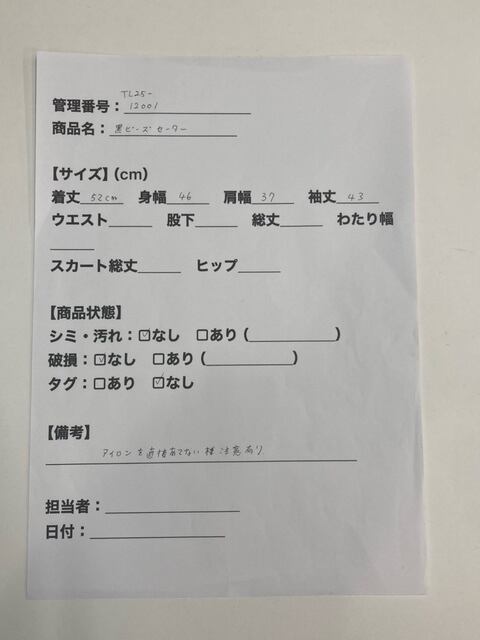 TL25-
管理番号：12001
商品名：黒ビーズセーター
【サイズ】(cm)
着丈 52cm 身幅 46 肩幅 37 袖丈 43
ウエスト______ 股下______ 総丈______ わたり幅
______
スカート総丈______ ヒップ______
【商品状態】
シミ・汚れ：☑なし □あり（____________）
破損：☑なし □あり（____________）
タグ：□あり ☑なし
【備考】
アイロンを直接あてない様注意あり
担当者：__________________
日付：__________________